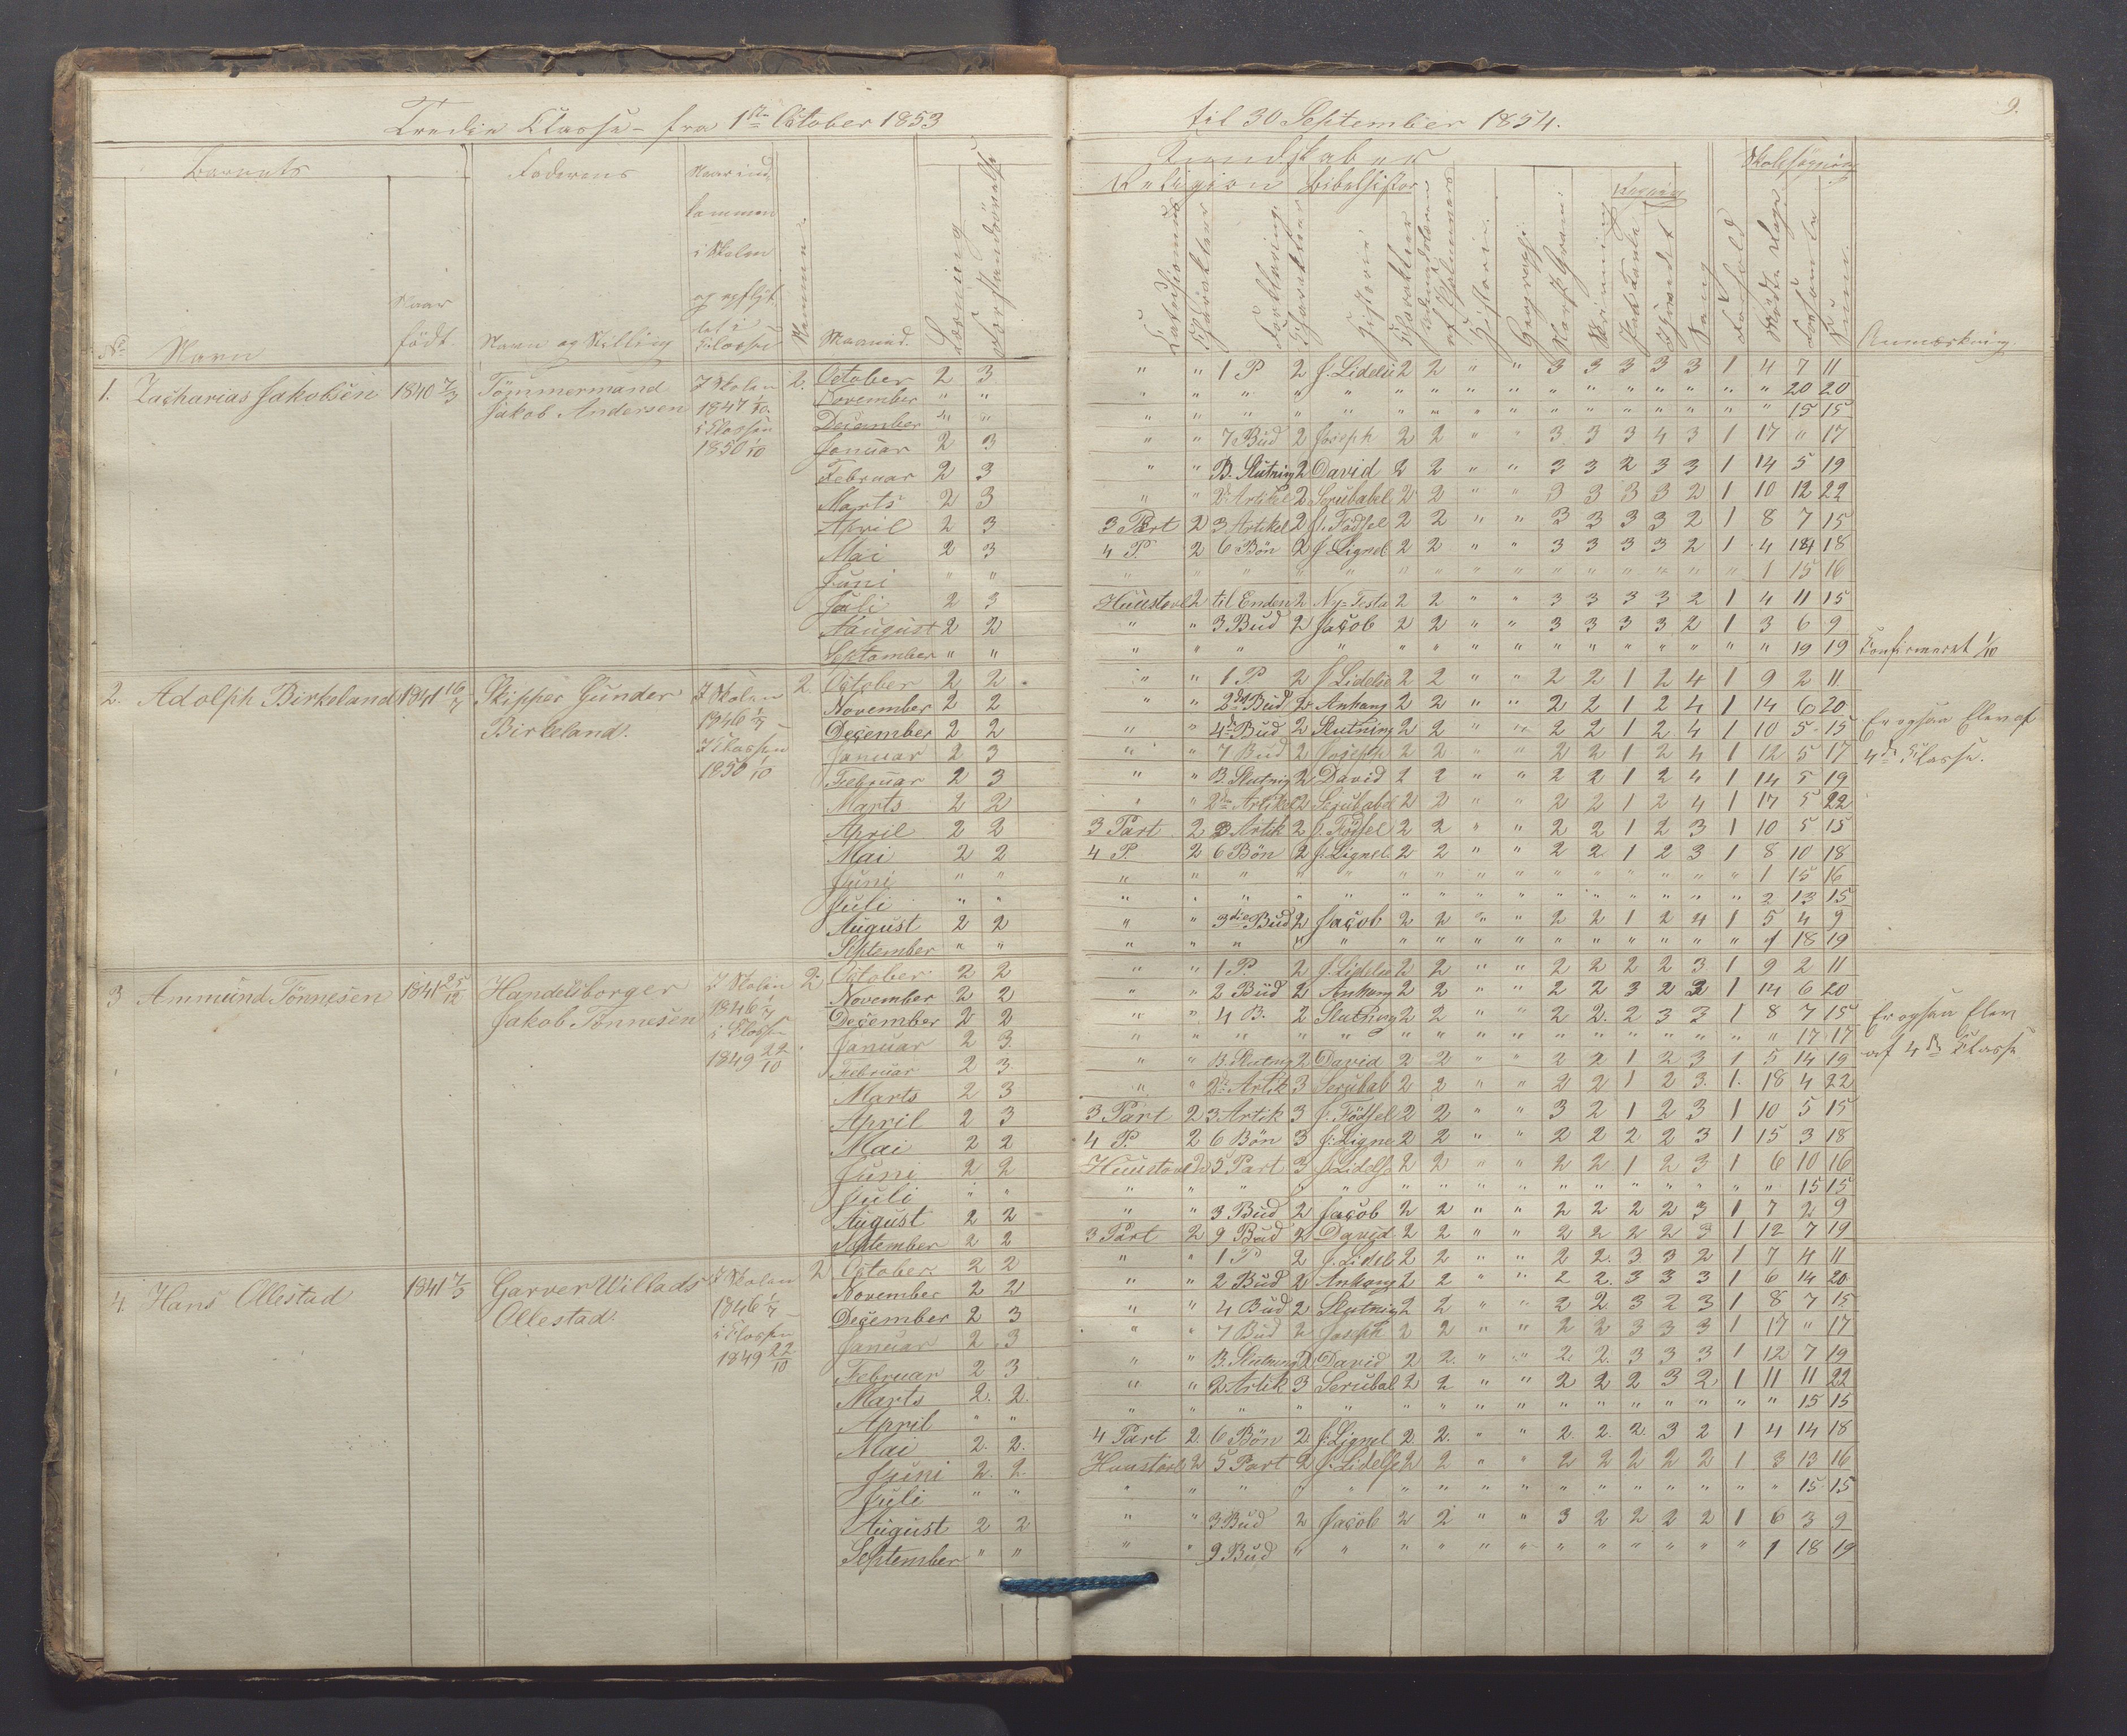 Tredie Classe - fra 1ste October 1853 til 30 September 1854.
9.
Barnets
Faderens
Kundskaber
Skolesøgning
Religion
Bibelhistor
Regning
No
Navn
Naar født.
Navn og Stilling
Naar ind-
kommen
i Skolen
og opflyt
tet i
Classen
Nummer.
Maaned.
Læsning
Forstandsøvelse
Catechismus
Charakteer
Forklaring.
Charakteer
Historie
Charakteer
Historie.
Geographi
Norsk Gram:
Skrivning
Paa Tavle
Hovedet
Sang
Forhold
Mødte Dage
Forsømte
Summa.
Anmærkning.
1. Zacharias Jakobsen 1840 7/3 Tömmermand Jakob Andersen I Skolen 1847 1/10. i Classen 1850 1/10 2.
October 2 3 " " 1 P 2 J. Lidelse 2 2 " " 3 3 3 3 3 1 4 7 11
November " " " " " " " " " " " " " " " " " " 20 20
December " " " " " " " " " " " " " " " " " " 15 15
Januar 2 3 " " 7 Bud 2 Joseph 2 2 " " 3 3 3 4 3 1 17 " 17
Februar 2 3 " " B. Slutning 2 David 2 2 " " 3 3 2 3 3 1 14 5 19
Marts 2 3 " " 2de Artikel 2 Serubabel 2 2 " " 3 3 3 3 2 1 10 12 22
April 2 3 3 Part 2 3 Artikel 2 J. Födsel 2 2 " " 3 3 3 3 2 1 8 7 15
Mai 2 3 4 P. 2 6 Bön 2 J. Lignel 2 2 " " 3 3 3 3 2 1 4 14 18
Juni " " " " " " " " " " " " " " " " " 1 15 16
Juli 2 3 Huustavl 2 til Enden 2 Ny=Testa 2 2 " " 3 3 3 3 2 1 4 11 15
August 2 2 " " 3 Bud 2 Jacob 2 2 " " 3 3 3 3 2 1 3 6 9
September " " " " " " " " " " " " " " " " " " 19 19 Confirmeret 1/10
2. Adolph Birkeland 1841 16/7 Skipper Gunder Birkeland. I Skolen 1846 1/7 I Classen 1850 1/10 2.
October 2 2 " " 1 P. 2 J Lidelse 2 2 " " 2 2 1 2 4 1 9 2 11
November 2 2 " " 2det Bud 2 Anhang 2 2 " " 2 2 1 2 4 1 14 6 20
December 2 2 " " 4de Bud 2 Slutning 2 2 " " 2 2 1 2 4 1 10 5 15
Januar 2 3 " " 7 Bud 2 Joseph 2 2 " " 2 2 1 2 4 1 12 5 17
Februar 2 3 " " B. Slutnig 2 David 2 2 " " 2 2 1 2 4 1 14 5 19
Marts 2 2 " " 2den Artikel 2 Serubabel 2 2 " " 2 2 1 2 4 1 17 5 22
April 2 2 3 Part 2 3 Artik 2 J. Födsel 2 2 " " 2 2 1 2 3 1 10 5 15
Mai 2 2 4 P. 2 6 Bön 2 J. Lignel 2 2 " " 2 2 1 2 3 1 8 10 18
Juni " " " " " " " " " " " " " " " " " 1 15 16
Juli " " " " " " " " " " " " " " " " " 2 13 15
August 2 2 " " 3die Bud 2 Jacob 2 2 " " 2 2 1 2 4 1 5 4 9
September " " " " " " " " " " " " " " " " " 1 18 19
Er ogsaa Elev af
4de Classe.
3 Ammund Tönnesen 1841 25/12 Handelsborger Jakob Tönnesen I Skolen 1846 1/7 i Classen 1849 22/10 2.
October 2 2 " " 1 P. 2 J. Lidelse 2 2 " " 2 2 2 2 3 1 9 2 11
November 2 2 " " 2 Bud 2 Anhang 2 2 " " 2 2 3 2 2 1 14 6 20
December 2 2 " " 4 B. 2 Slutning 2 2 " " 2 2 2 3 3 1 8 7 15
Januar 2 3 " " " " " " " " " " " " " " " " 17 17
Februar 2 3 " " B. Slutnig 2 David 2 2 " " 2 2 1 2 3 1 5 14 19
Marts 2 3 " " 2de Artik 3 Serubab 2 2 " " 2 2 1 2 3 1 18 4 22
April 2 3 3 Part 2 3 Artik 3 J. Födsel 2 2 " " 3 2 1 2 3 1 10 5 15
Mai 2 2 4 P. 2 6 Bön 3 J. Ligne 2 2 " " 2 2 2 2 3 1 15 3 18
Juni 2 2 Huustavl 2 5 Part 3 J Lidelse 2 2 " " 2 2 1 2 3 1 6 10 16
Juli " " " " " " " " " " " " " " " " " " 15 15
August 2 2 " " 3 Bud 2 Jacob 2 2 " " 2 2 2 2 3 1 7 2 9
September 2 2 3 Part 2 9 Bud 2 David 2 2 " " 2 2 2 2 3 1 12 7 19
Er ogsaa Elev
af 4de Classe
4. Hans Ollestad 1841 7/5 Garver Willads Ollestad. I Skolen 1846 1/7 i Classen 1849 22/10 2
October 2 2 " " 1 P 2 J. Lidel 2 2 " " 2 2 3 3 2 1 7 4 11
November 2 2 " " 2 Bud 2 Anhang 2 2 " " 2 2 3 3 3 1 6 14 20
December 2 3 " " 4 Bud 2 Slutnig 2 2 " " 2 2 3 2 3 1 8 7 15
Januar 2 3 " " 7 Bud 2 Joseph 2 2 " " 2 2 3 3 3 1 17 " 17
Februar 2 3 " " B. Slutning 2 David 2 2 " " 2 2 3 3 3 1 12 7 19
Marts 2. 2. " " 2 Artik 3 Serubal 2 2 " " 2 2 2 3 2 1 11 11 22
April " " " " " " " " " " " " " " " " " " 15 15
Mai 2. 2. 4 Part 2. 6 Bön 2 J. Lignel 2 2. " " 2. 2. 2. 3 2 1 4 14 18
Juni 2. 2. Huustavl 2 5 Part 2 J. Lidelse 2 2 " " 2 2 2 2 2 1 3 13 16
Juli " " " " " " " " " " " " " " " " " " 15 15
August 2 2 " " 3 Bud 2 Jacob 2 2 " " 3 2 2 2 2 1 6 3 9
September " " " " 9 Bud " " " " " " " " " " " " 1 18 19